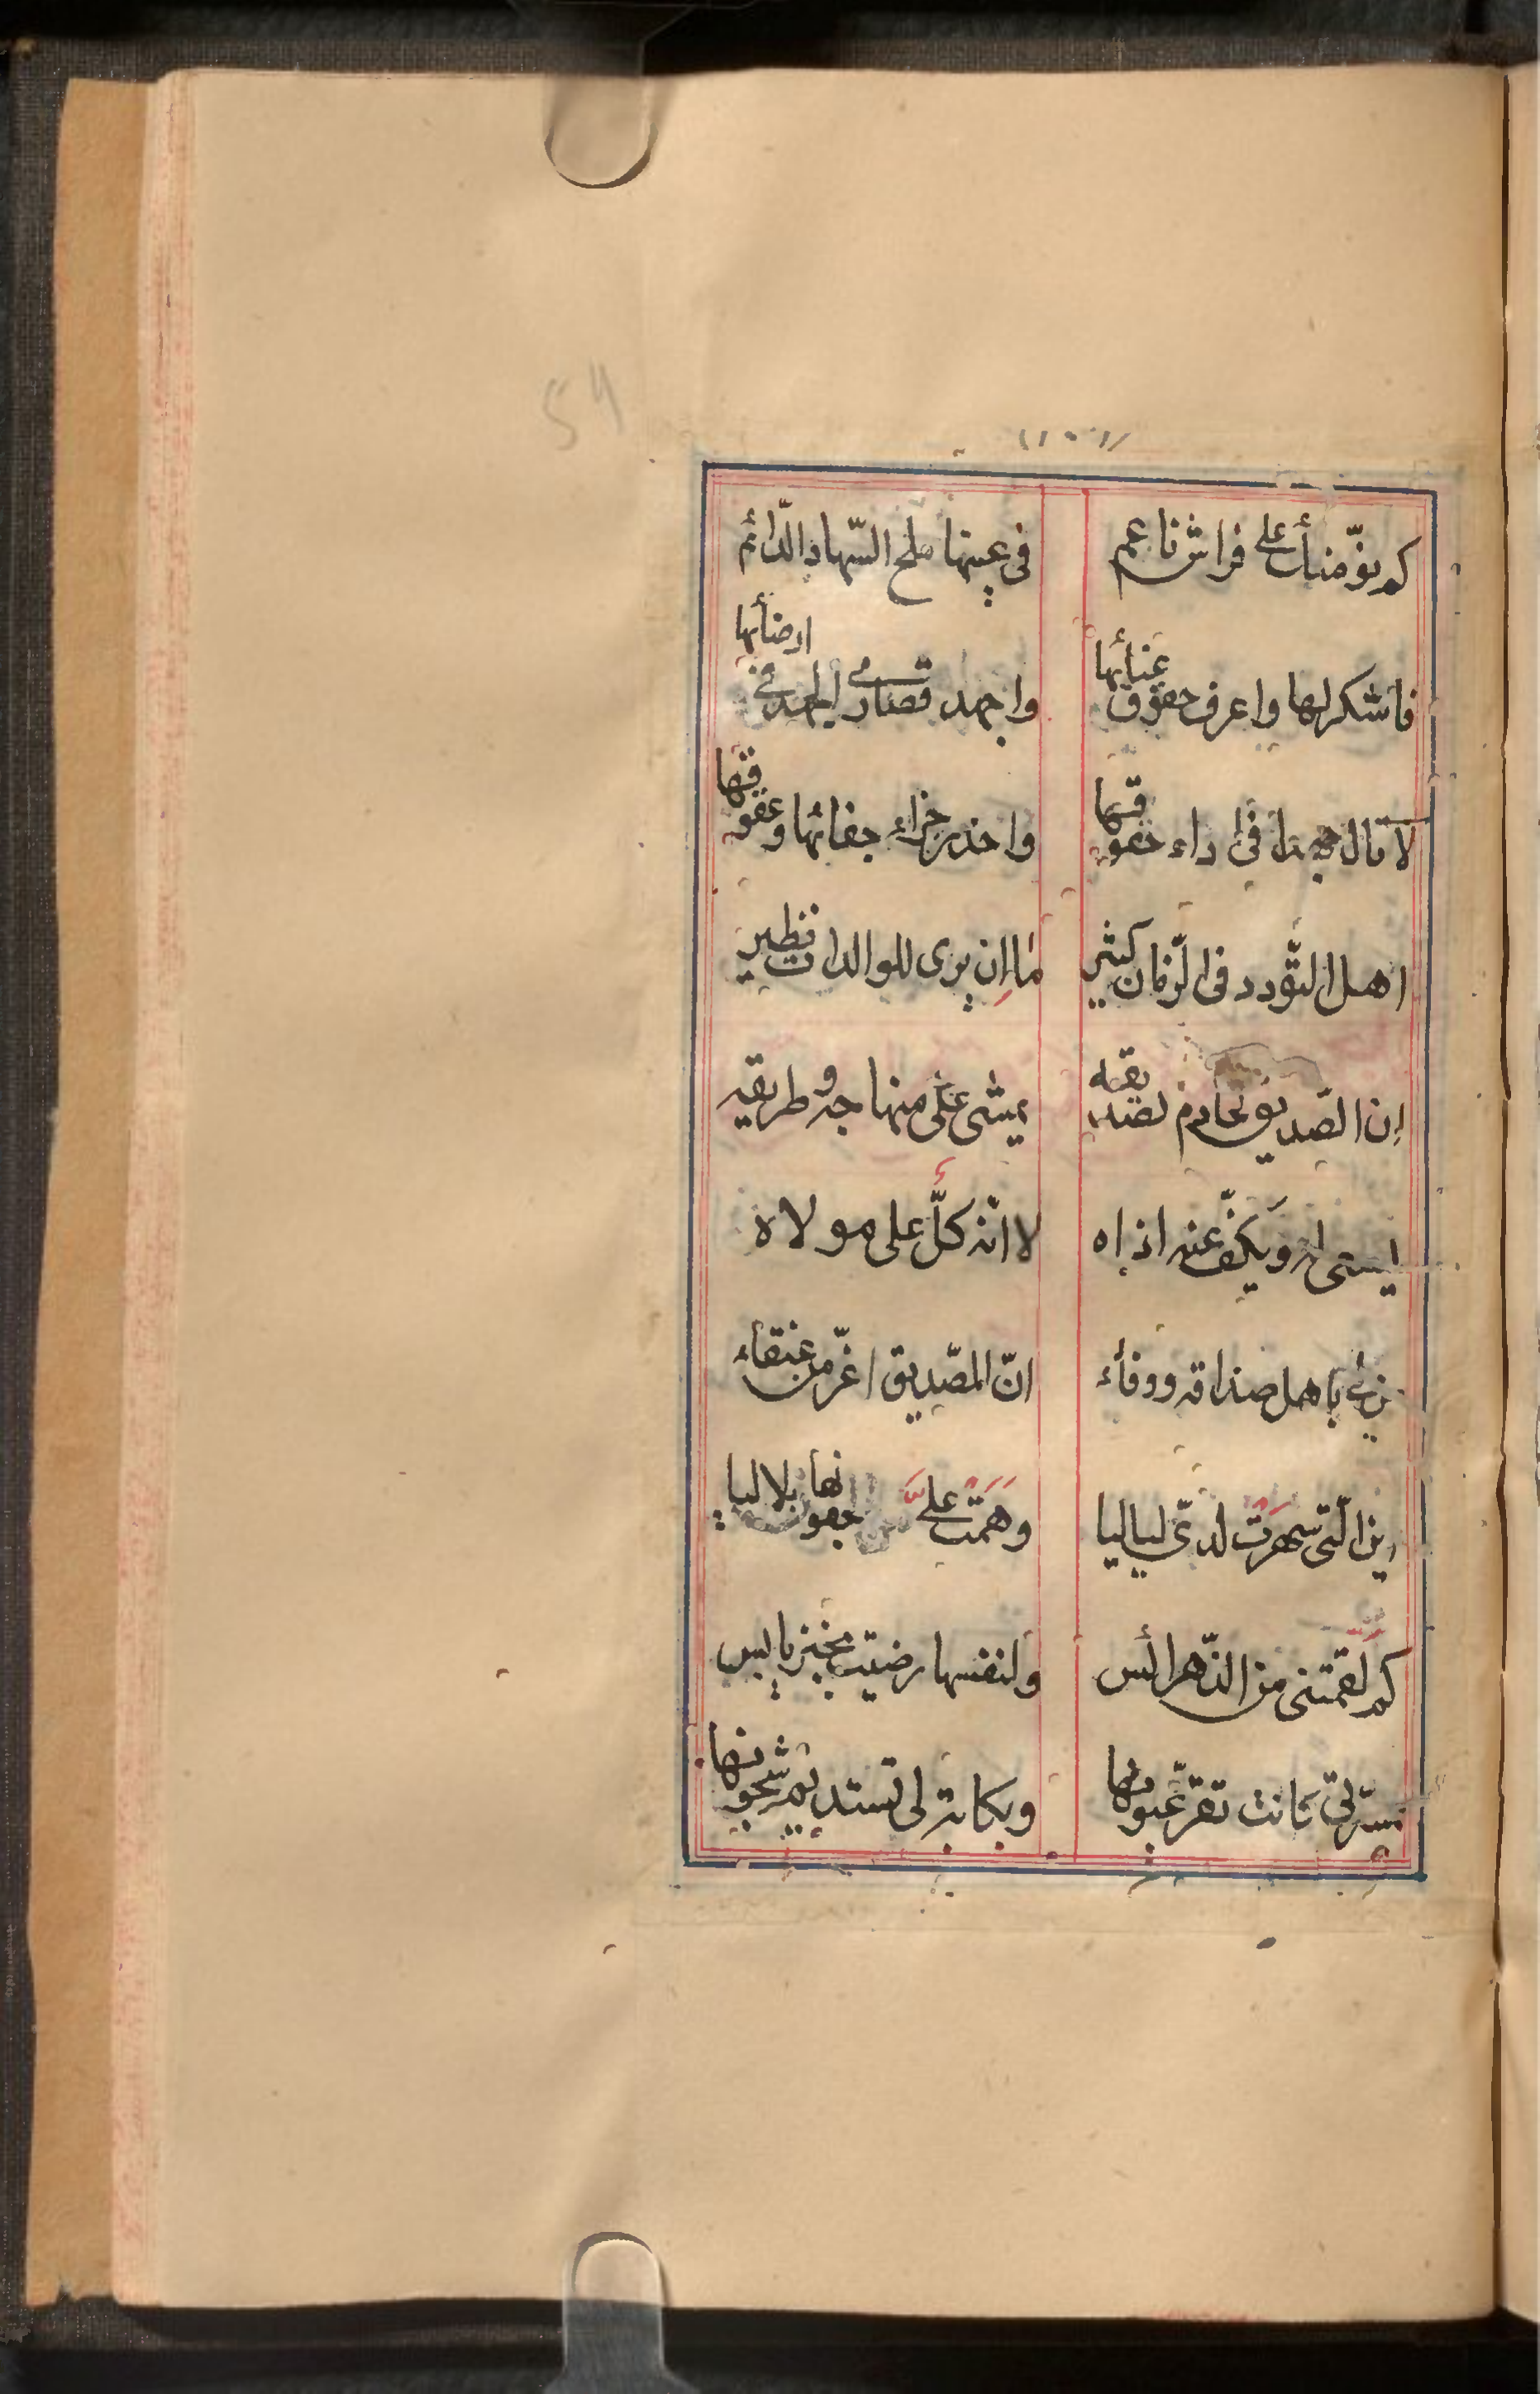 54
(١٠٦)
كم نوّمتك على فراش ناعم في عينها ملح السّهاد الدّائم
فاشكر لها واعرف حقوق عنائها واجهد قصارى الجهد في ارضائها
لا تال جهدا في اداء حقوقها واحذر جزاء جفائها وعقوقها
اهل التّودد في الزّمان كثير ما إن يرى للوالدات نظير
إن الصّديق لخادم لصديقه يمشى على منهاجه وطريقه
يسعى له ويكفّ عنه اذاه لا انّه كلّ على مولاه
باهل صداقه ووفاء انّ الصّديق اعزّ من عنقاء
اين الّتى سهرت لديّ لياليا وهمت علىّ جفونها بلاليا
كم لقمتنى من ولنفسها رضيت بخبز يابس
بمسرّتى كانت تقرّ عيونها وبكابة لى تستديم شجونها